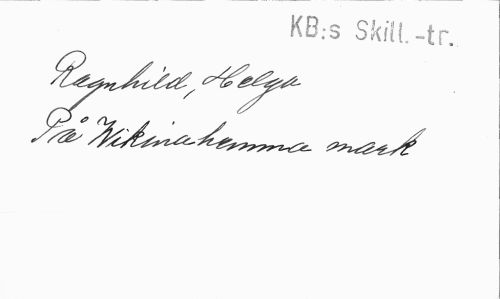 KB:s Skill.-tr.
Ragnhild, Helga
På Wikinahemma mark